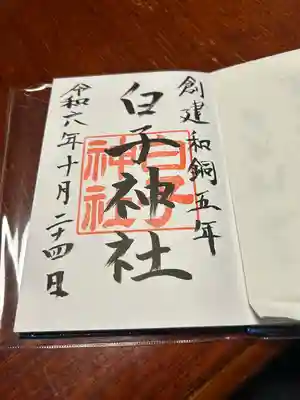 創建和銅五年
白子神社
白子神社
令和六年十月二十四日